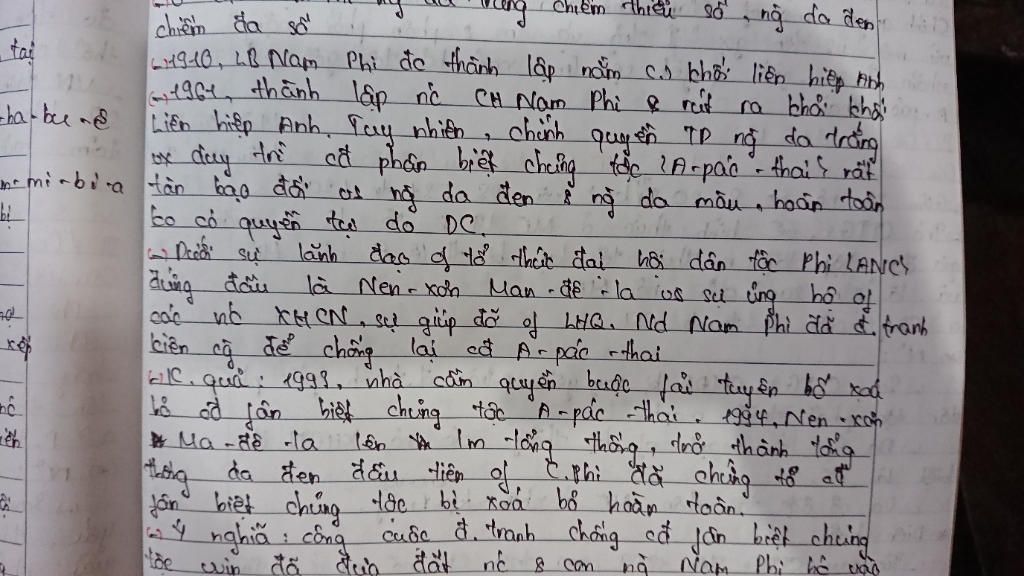 da trắng chiếm thiểu số, ng̃ da đen
chiếm đa số
1910, LB Nam Phi đc thành lập nằm c.) khối liên hiệp Anh
1961, thành lập nc CH Nam Phi & rút ra khỏi khối
tai
Liên hiệp Anh. Tuy nhiên, chính quyền TD ng̃ da trắng
-ba-bu-ê
duy trì cđ phân biệt chủng tộc (A-pác-thai) rất
mi-bi-a
tàn bạo đối vs ng̃ da đen & ng̃ da màu, hoàn toàn
bị
ko có quyền tự do DC.
Dưới sự lãnh đạo of tổ thức đại hội dân tộc Phi (ANC)
đứng đầu là Nen-xơn Man-đê-la vs sự ủng hộ of
các nc XHCN, sự giúp đỡ of LHQ. Nd Nam Phi đã đ.tranh
xếp
kiên cg̃ để chống lại cđ A-pác-thai
K.quả: 1993, nhà cầm quyền buộc fải tuyên bố xoá
bỏ cđ fân biệt chủng tộc A-pác-thai. 1994, Nen-xơn
Ma-đê-la lên lm tổng thống, trở thành tổng
thống da đen đầu tiên of C.Phi đã chứng tỏ cđ
fân biệt chủng tộc bị xoá bỏ hoàn toàn.
Ý nghĩã: công cuộc đ.tranh chống cđ fân biệt chủng
tộc win đã đưa đất nc & con ng̃ Nam Phi bc vào